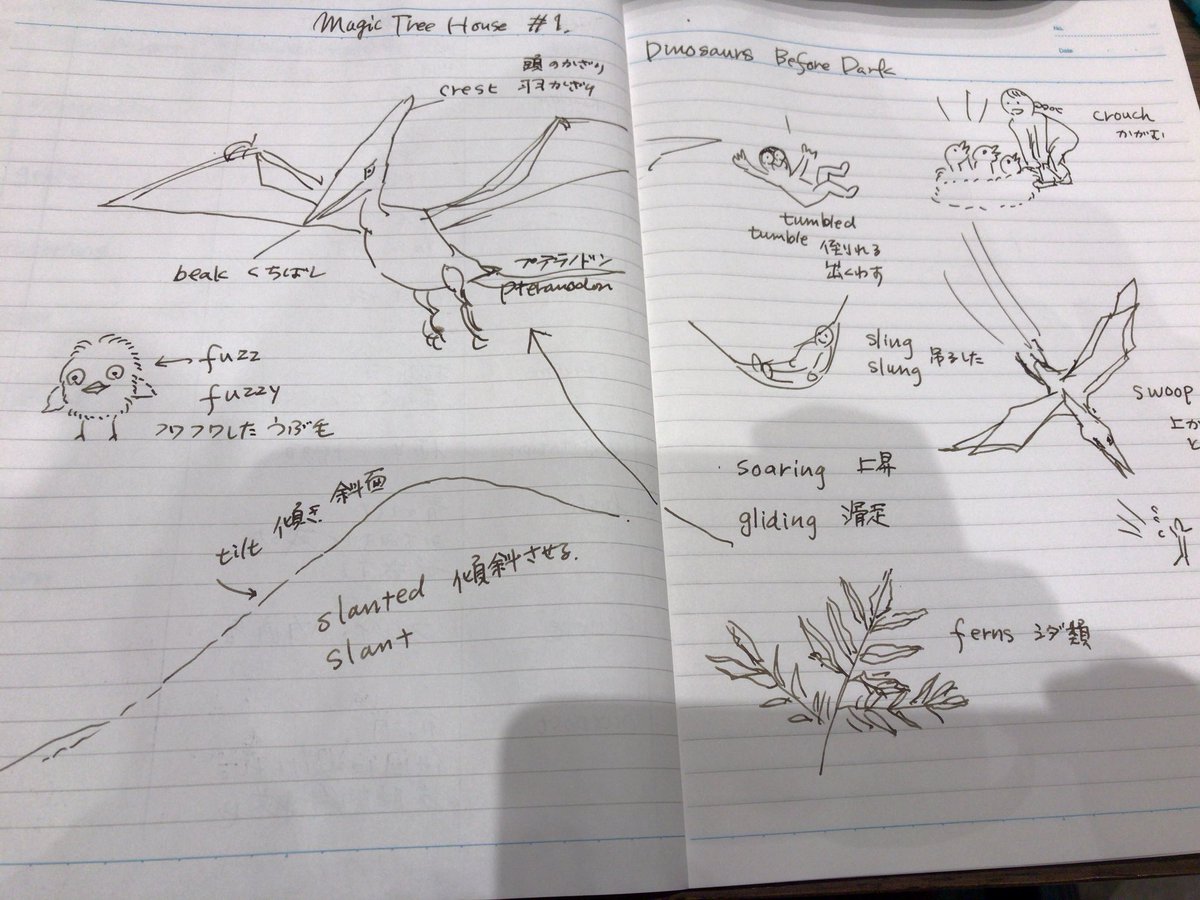 Magic Tree House #1.
頭のかざり
crest 羽かざり
beak くちばし
プテラノドン
pteranodon
fuzz
fuzzy
フワフワした うぶ毛
tilt 傾き 斜面
slanted 傾斜させる.
slant
No.
Date
Dinosaurs Before Dark
crouch
かがむ
tumbled
tumble 倒れる
出くわす
sling
slung 吊るした
swoop
上か
と
soaring 上昇
gliding 滑走
ferns シダ類